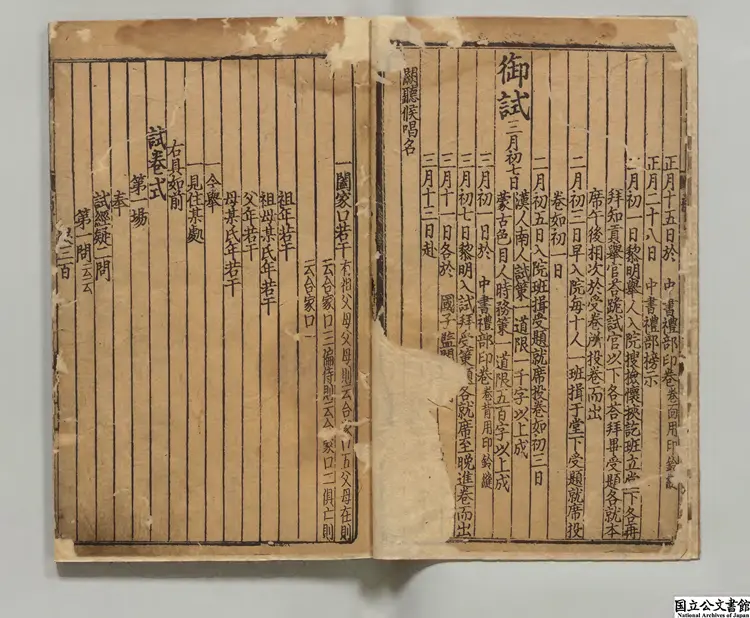 正月十五日於 中書禮部印卷卷面用印鈐縫
正月二十八日 中書禮部榜示
二月初一日黎明舉人入院搜撿懷挾訖班立堂下各再
拜知貢舉官荅跪試官以下各荅拜畢受題各就本
席午後相次於受卷所投卷而出
二月初三日早入院每十人一班揖于堂下受題就席投
卷如初一日
二月初五日入院班揖受題就席投卷如初三日
御試三月初七日
漢人南人試策一道限一千字以上成
蒙古色目人時務策一道限五百字以上成
三月初一日於 中書禮部印卷卷背用印鈐縫
三月初七日黎明入試拜受策題各就席至晚進卷而出
三月十一日各於 國子監
三月十三日赴
闕聽候唱名
一闔家口若干
祖父母父母則云合家口五父母在則
云合家口三偏侍則云合家口二俱亡則
云合家口一
祖年若干
祖母某氏年若干
父年若干
母某氏年若干
一今舉
一見住某處
右具如前
試卷式
第一場
奉
試經疑二問
第一問云云